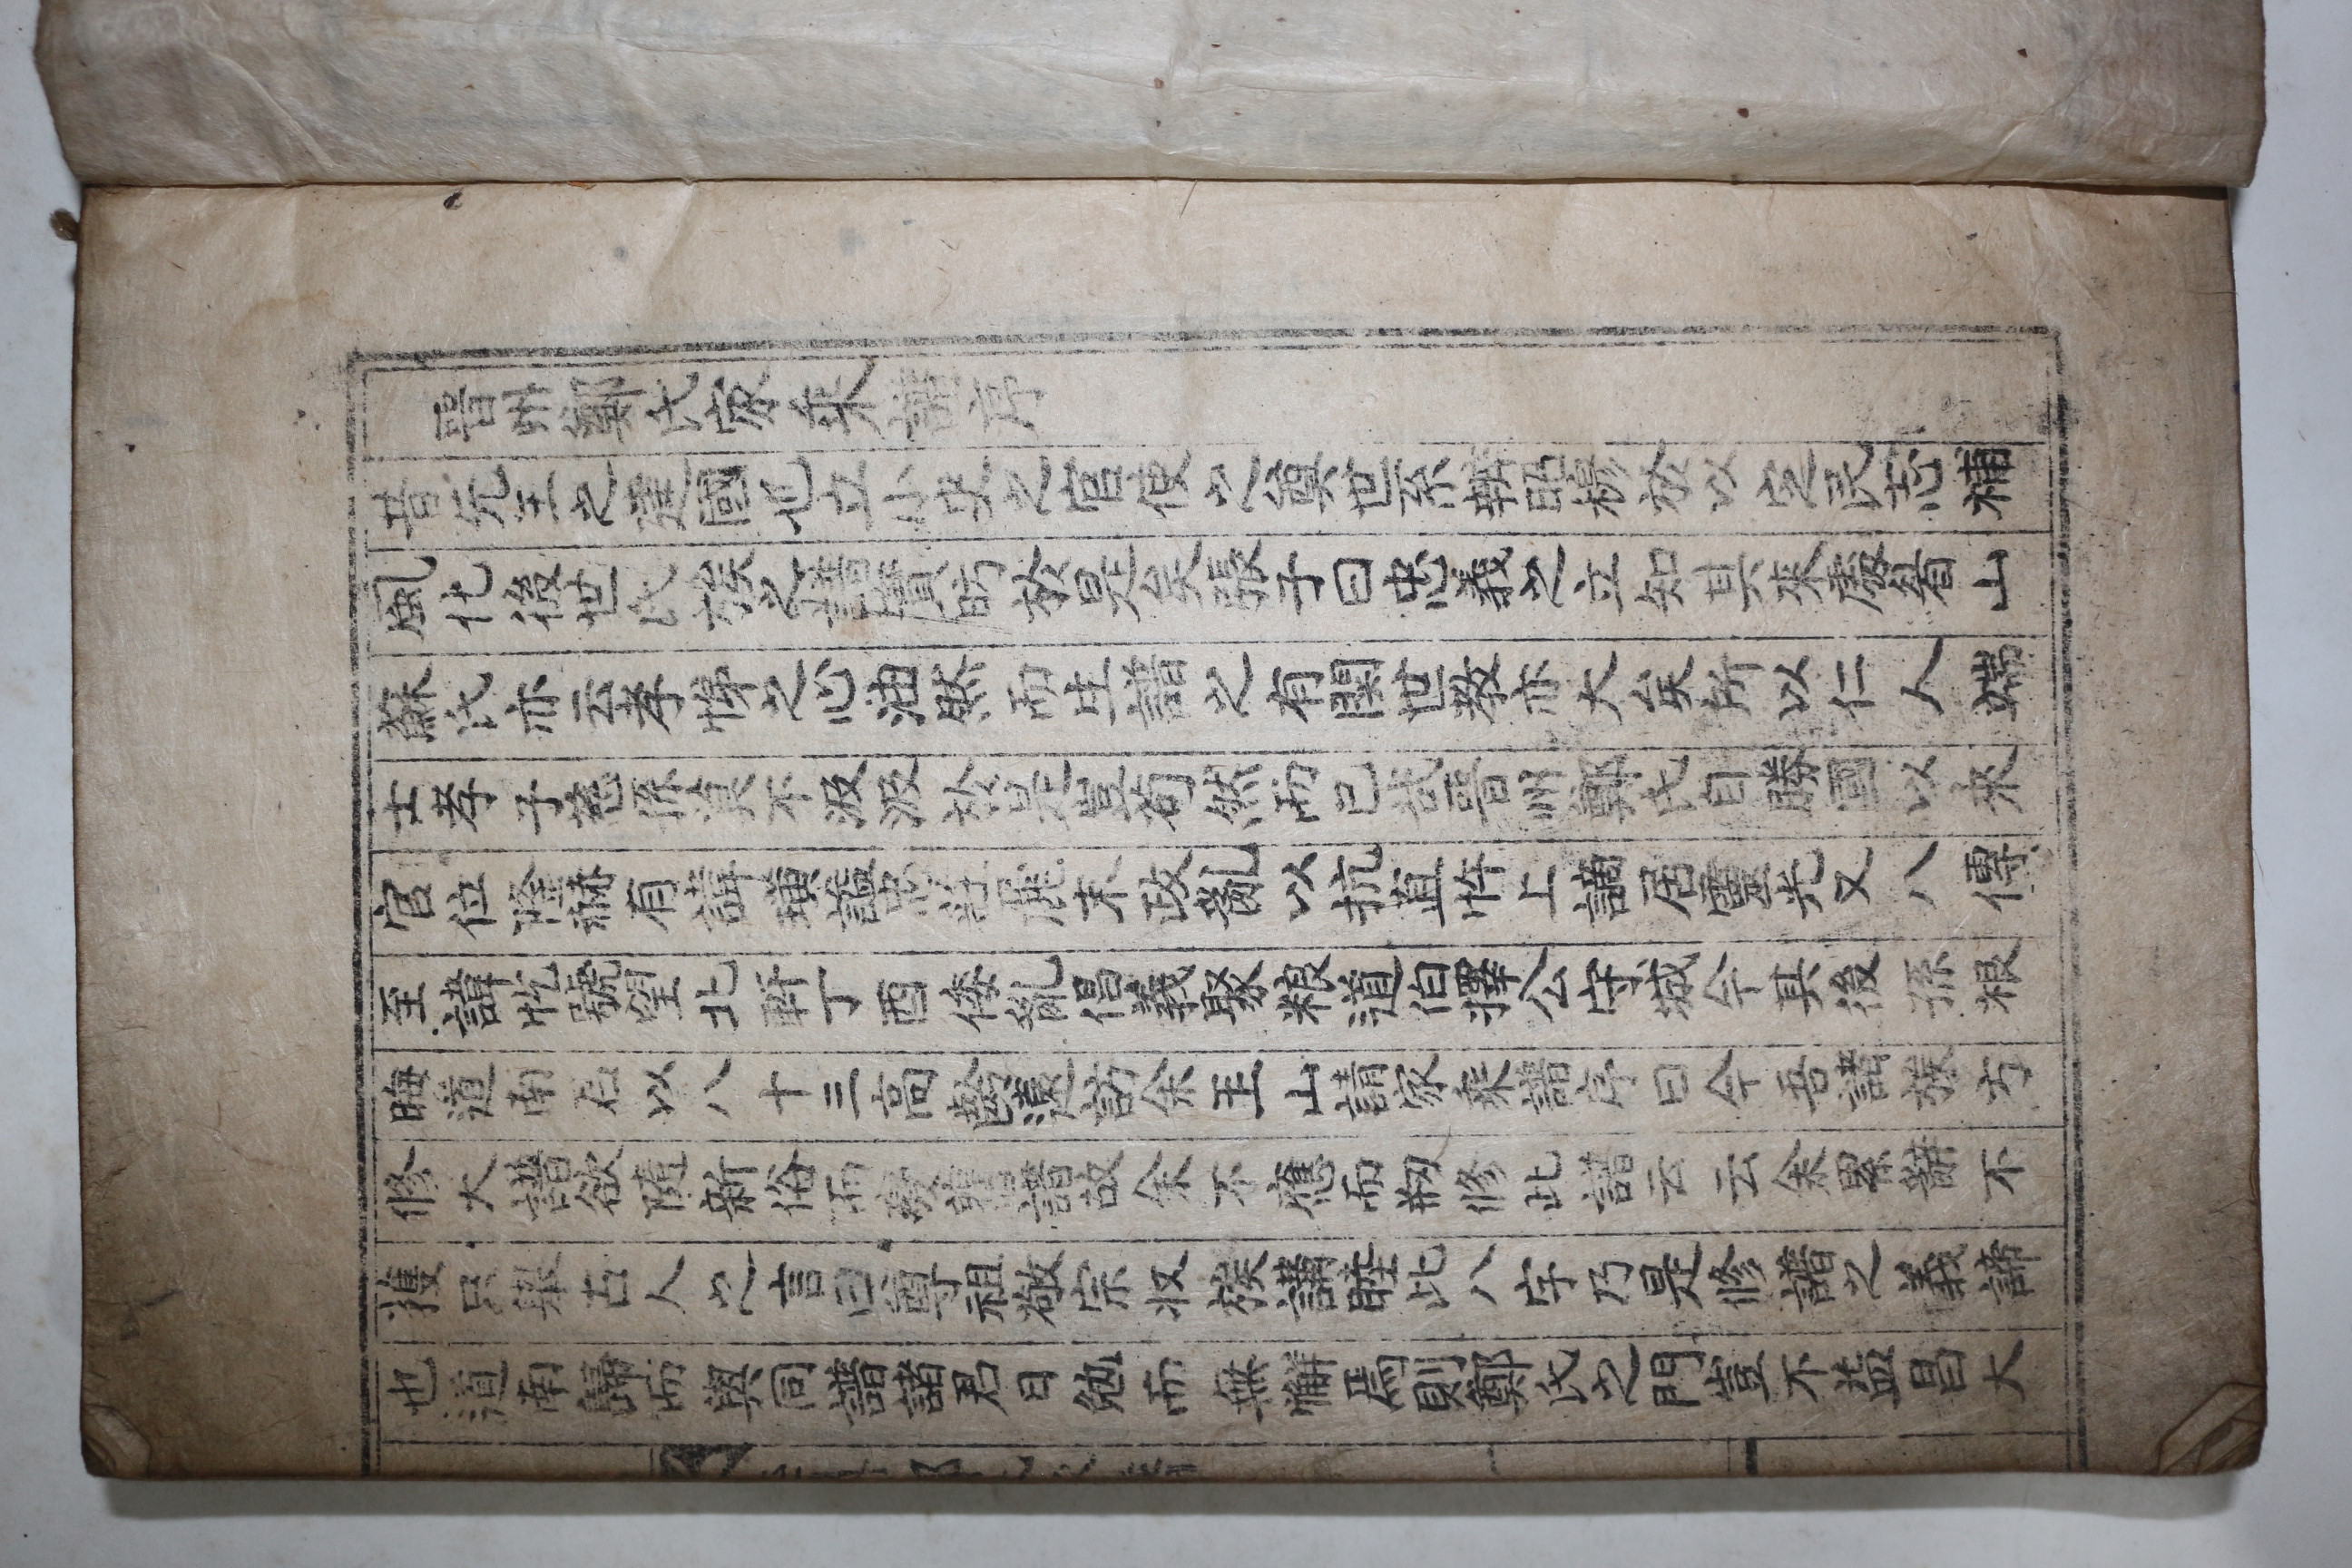 晋州鄭氏家乘譜序
昔先王之建國也立小史之官使之奠世系辨昭穆於以定民志補
風化後世氏族之譜實昉於是矣張子曰忠義之立知其來處眉山
蘇氏亦云孝悌之心油然而生譜之有関世教亦大矣所以仁人端
士孝子慈孫莫不汲汲於是豈苟然而已哉晋州鄭氏自勝國以來
官位隆赫有諱璜諡忠莊麗末政亂以抗直忤上謫居靈光又八傳
至諱忔號望北軒丁酉倭亂倡義聚粮道伯擇公守城今其後孫根
晦道南君以八十三高齡遠訪余王山請家乘譜序曰今吾諸族方
修大譜欲隨新俗而變舊譜故余不應而刱修此譜云云余累辭不
獲只擧古人之言曰尊祖敬宗収族講睦此八字乃是修譜之義諦
也道南歸而與同譜諸君日勉而無懈焉則鄭氏之門豈不益昌大